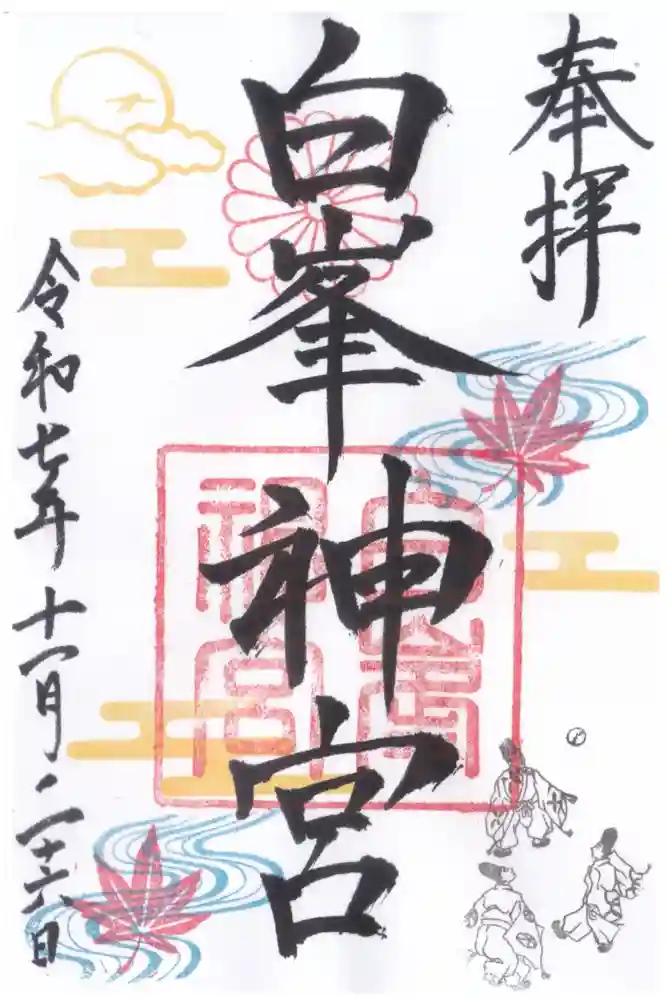 奉拝
白峯神宮
白峯神宮
令和七年十一月二十六日